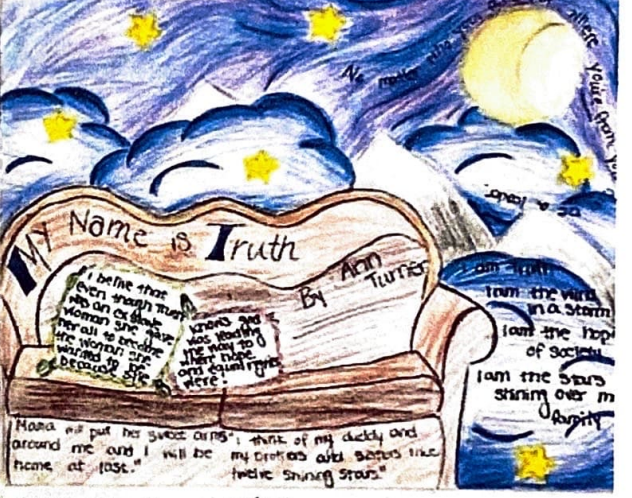 No matter who you are or where
you're from you
be a leader.
My Name is Truth
By Ann
Turner
I belive that
even though Truth
was an ex slave
woman she gave
her all to become
the woman she
wanted to be
because she
knows she
was leading
the way to
where hope
and equal rights
were!
I am Truth
I am the wind
in a storm
I am the hop
of society
I am the stars
shining over m
family
Mama will put her sweet arms
around me and I will be
home at last."
"I think of my daddy and
my brothers and sisters like
twelve shining stars"